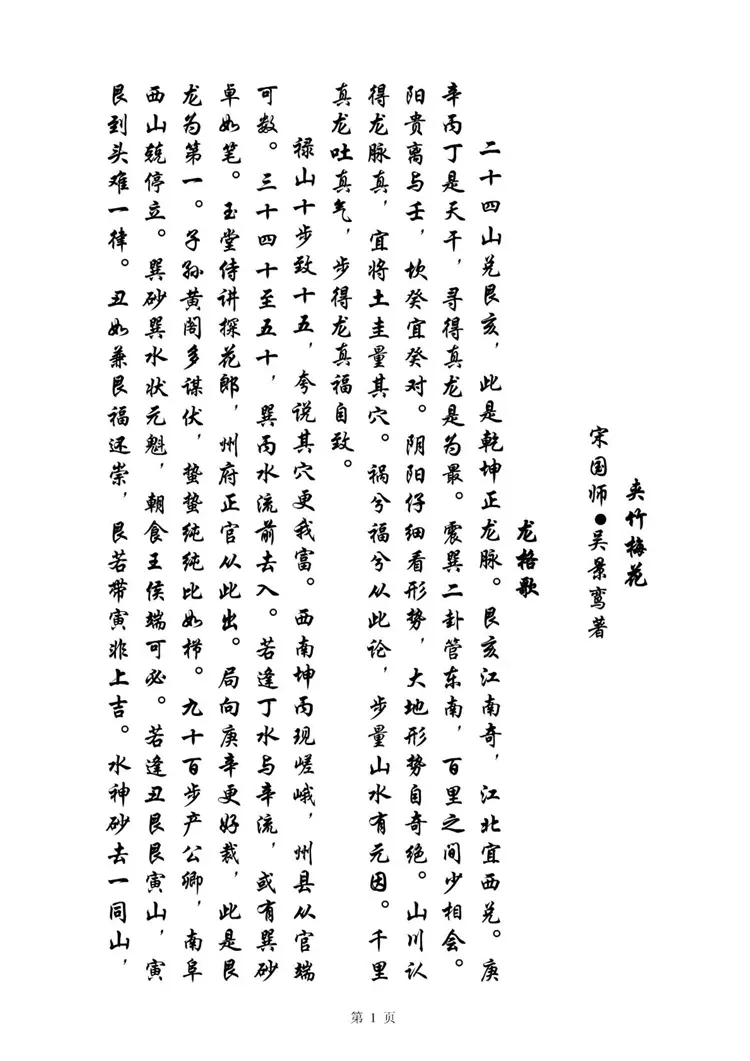 夹竹梅花
宋国师●吴景鸾著
龙格歌
二十四山兑艮亥，此是乾坤正龙脉。艮亥江南奇，江北宜西兑。庚
辛丙丁是天干，寻得真龙是为最。震巽二卦管东南，百里之间少相会。
阳贵离与壬，坎癸宜癸对。阴阳仔细看形势，大地形势自奇绝。山川认
得龙脉真，宜将土圭量其穴。祸兮福兮从此论，步量山水有元因。千里
真龙吐真气，步得龙真福自致。
禄山十步致十五，夸说其穴更我富。西南坤丙现嵯峨，州县从官端
可数。三十四十至五十，巽丙水流前去入。若逢丁水与辛流，或有巽砂
卓如笔。玉堂侍讲探花郎，州府正官从此出。局向庚辛更好裁，此是艮
龙为第一。子孙黄阁多谋伏，蛰蛰纯纯比如栉。九十百步产公卿，南阜
西山兢停立。巽砂巽水状元魁，朝食王侯端可必。若逢丑艮艮寅山，寅
艮到头难一律。丑如兼艮福还崇，艮若带寅非上吉。水神砂去一同山，
第 1 页